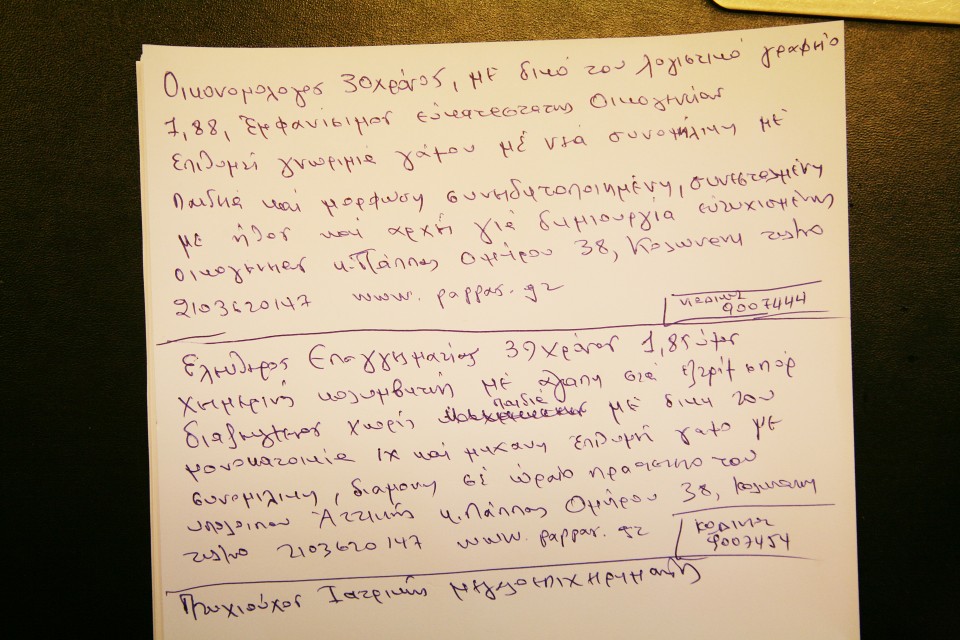 Οικονομολογος 30χρόνος, με δικό του λογιστικό γραφείο
1,88, Εμφανίσιμος ευκατεστατης Οικογενείας
επιθυμεί γνωριμία γάμου με νέα συνομίλικη με
παιδεία και μορφωση συνειδητοποιημένη, συνεσταλμένη
με ήθος και αρχές γιά δημιουργία ευτυχισμένης
οικογενειας κ. Πάππας Ομήρου 38, Κολωνακι τηλ/νο
2103620147 www.pappas.gr
κωδικος
9007444
Ελευθερος Επαγγελματίας 39χρόνος 1,85 ύψος
χειμερινός κολυμβητής με αγαπη στα εξτρίμ σπόρ
παιδιά
διαζευγμενος χωρίς με δικη του
μονοκατοικία ΙΧ και μηχανη επιθυμεί γαμο με
συνομιλικη, διαμονη σε ώραίο προαστειο του
υπολοιπου Αττικής κ. Πάππας Ομήρου 38, Κολωνακι
τηλ/νο 2103620147 www.pappas.gr
κωδικος
9007454
Πτυχιούχος Ιατρικής μεγαλοεπιχειρηματίας